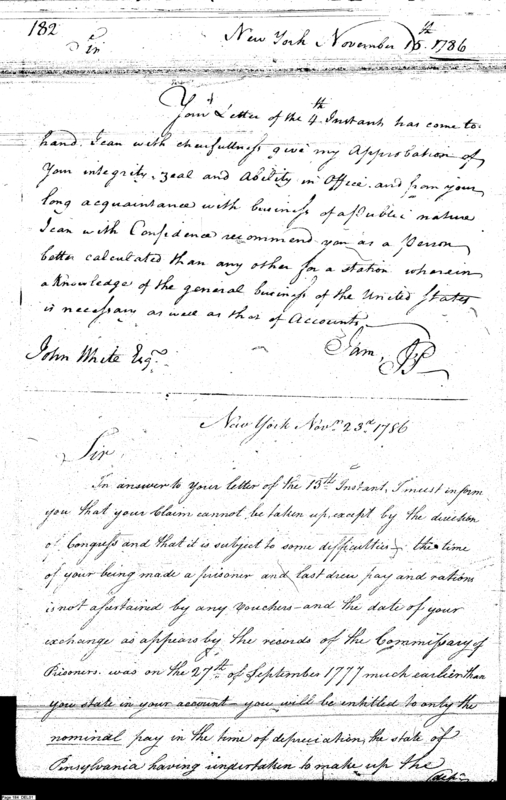 182
New York November 15.th 1786
Sir
Your Letter of the 4th Instant has come to
hand. I can with chearfullness give my Approbation of
Your integrity, zeal and Ability in Office. and from your
long acquaintance with business of a Public nature
I can with Confidence recommend you as a Person
better calculated than any other for a station wherein
a Knowledge of the general business of the United States
is necessary as well as that of Accounts.
I am, JP
John White Esqr.
New York Novr. 23d. 1786
Sir
In answer to your letter of the 13th Instant, I must inform
you that your Claim cannot be taken up, except by the direction
of Congress and that it is subject to some difficulties; the time
of your being made a prisoner and last drew pay and rations
is not assertained by any vouchers—and the date of your
exchange as appears by the records of the Commissary of
Prisoners. was on the 27th of September 1777 much earlier than
you state in your account—you will be entitled to only the
nominal pay in the time of depreciation, the state of
Pensylvania having undertaken to make up the
Page 184 DBL21